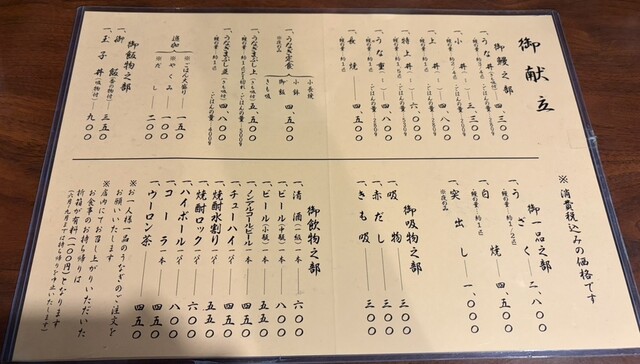 御献立
御鰻之部
一、うな丼(きも吸付)四、三〇〇
一、小丼(〃)三、三〇〇
一、上丼(〃)四、八〇〇
一、特上丼(〃)六、〇〇〇
一、うな重(〃)四、八〇〇
一、長焼 四、五〇〇
一、うなぎ定食 四、五〇〇
※夜のみ
小長焼
小鉢
御飯
きも吸
一、うなぎまぶし上 五、五〇〇
一、うなぎまぶし並 四、八〇〇
追加
※ごはん大盛り 一五〇
※やくみ
※だし 二〇〇
御飯物之部
一、御飯 三五〇
一、玉子丼(吸物付)九〇〇
※消費税込みの価格です
御一品之部
一、うざく 二、八〇〇
一、白焼 四、五〇〇
一、突出し 一、〇〇〇
※夜のみ
御吸物之部
一、吸物 三〇〇
一、赤だし 三〇〇
一、きも吸 三〇〇
御飲物之部
一、清酒(一級)一本 六〇〇
一、ビール(中瓶)一本 八〇〇
一、ビール(小瓶)一本 五五〇
一、ノンアルコールビール一本 四五〇
一、チューハイ 五五〇
一、焼酎水割り 五五〇
一、焼酎ロック 六〇〇
一、ハイボール 八〇〇
一、コーラ 一本 四五〇
一、ウーロン茶 四五〇
※お一人様一品のうなぎのご注文を
お願いいたします
※店内にてお召し上がりいただいた
お食事のお持ち帰りは
折箱が有料(一〇〇円)となります
(六月〜九月までは持ち帰り中止いたします)